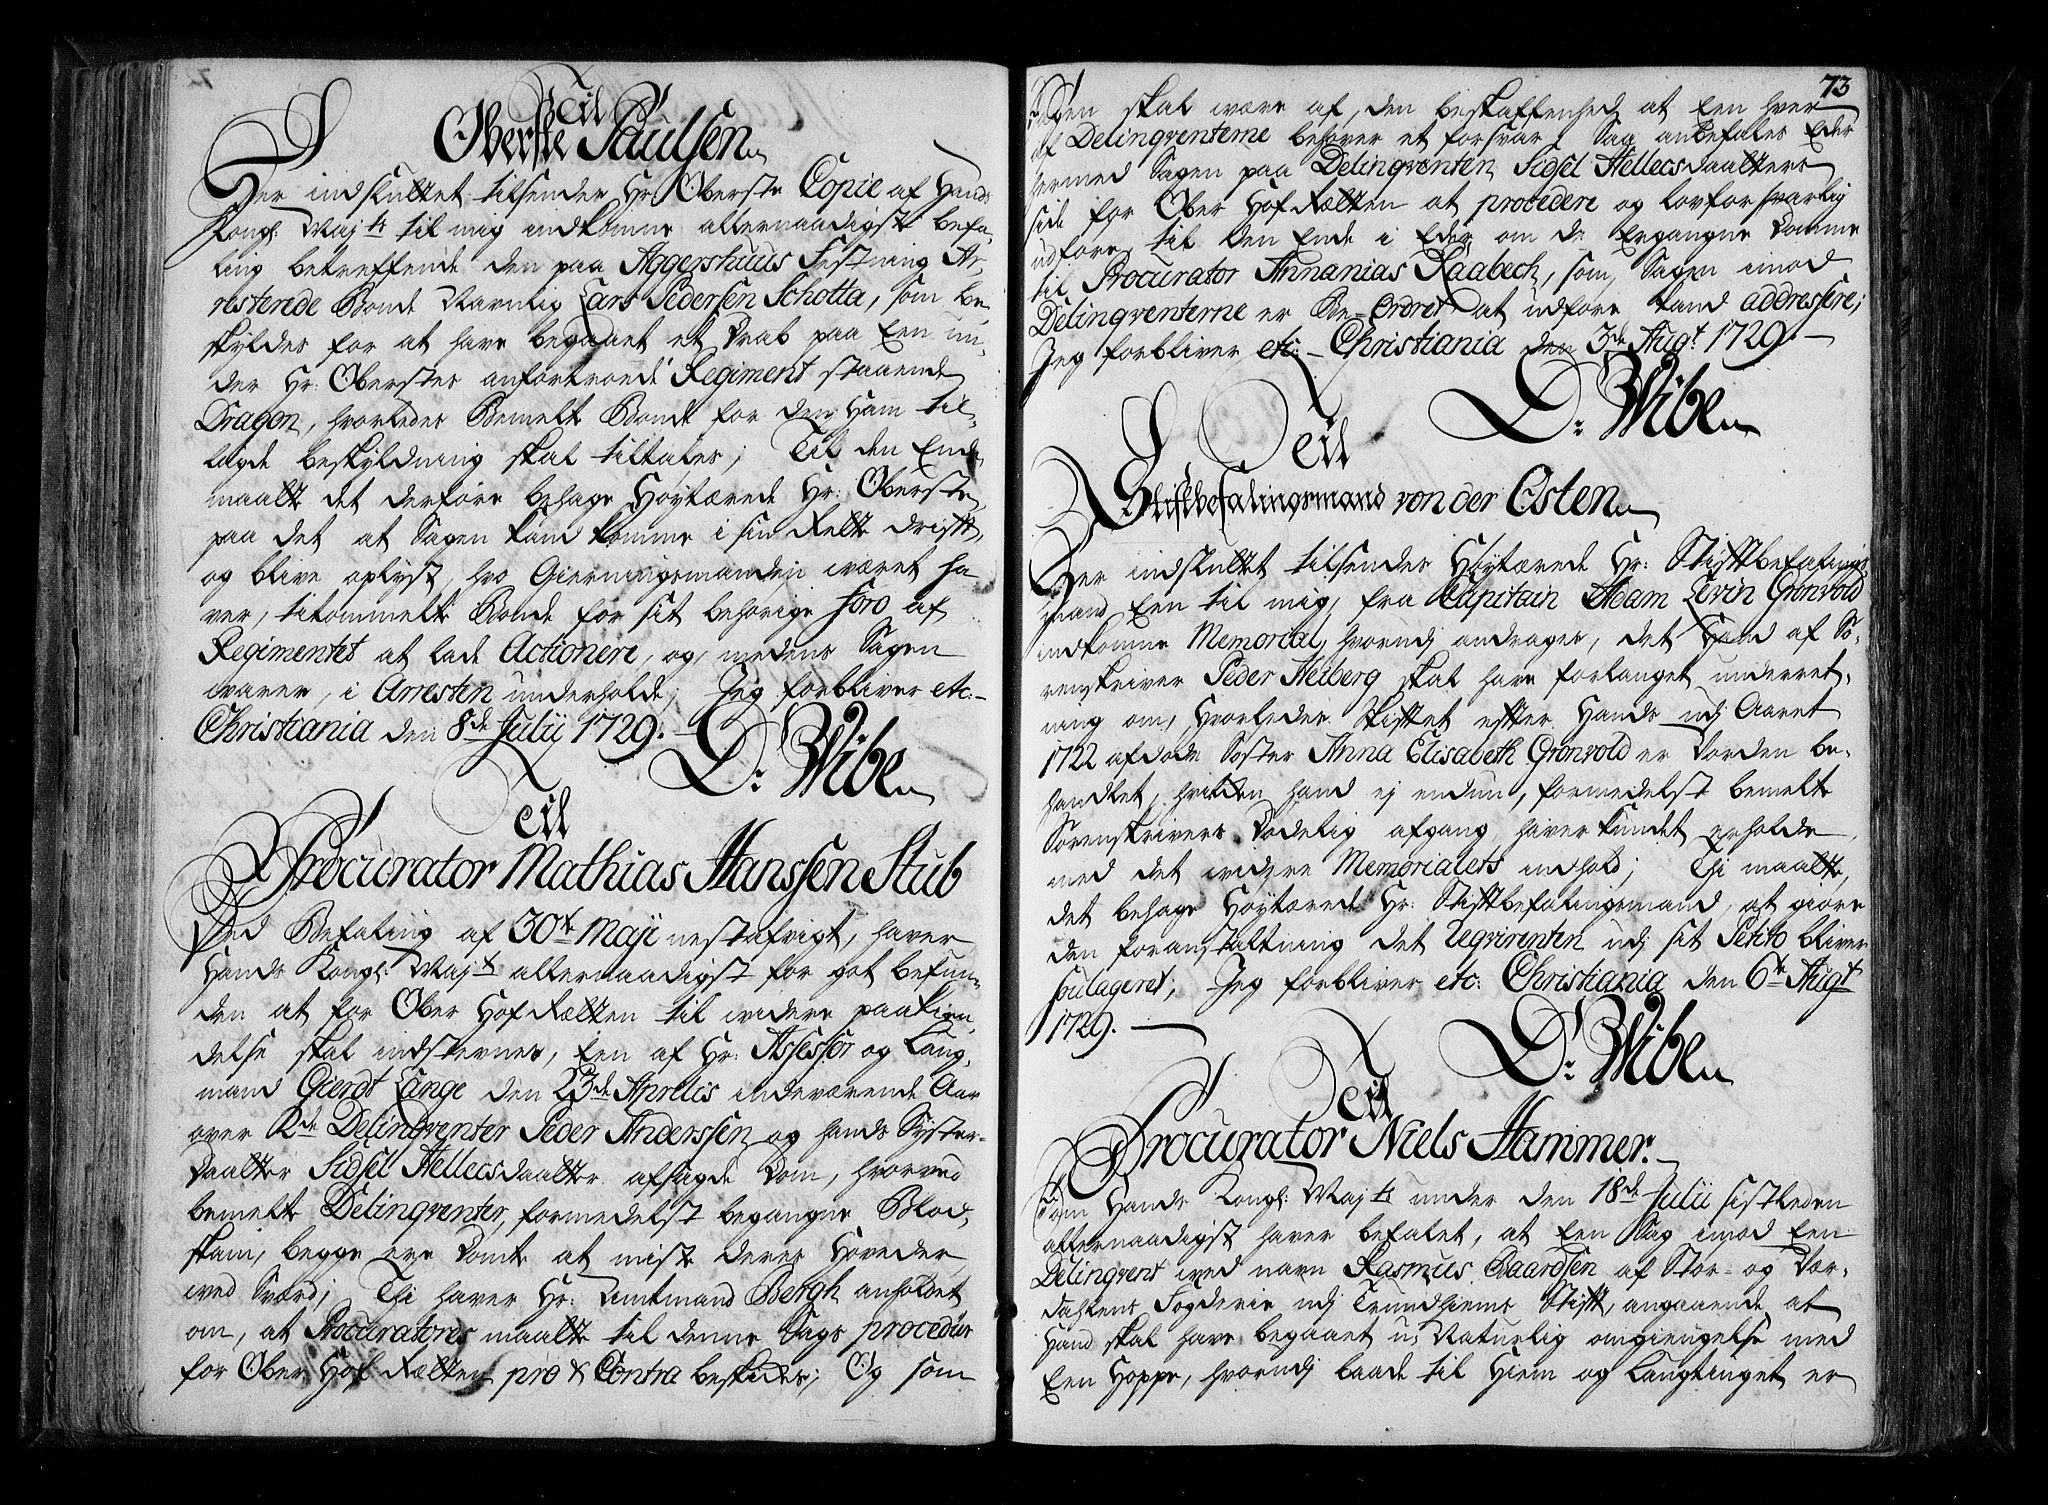 Til
Oberste Paulsen
Her indsluttet tilsendes Hr: Oberste Copie af Hands
Kongl: Maj:ts til mig indkomne allernaadigste befa-
ling betreffende den paa Aggershuus Festning Ar-
resterede Bonde Navnlig Lars Pedersen Schotta, som be-
skyldes for at have begaaet et Drab paa Een un-
der Hr: Oberstes anfortroede Regiment staaende
Dragon, hvorledes Bemelte Bonde for den Ham til-
lagde beskyldning skal tiltales; Til den Ende
maatte det derfore behage Høytærede Hr: Oberste,
paa det at Sagen kand komme i sin Rette drifft,
og blive oplyst, hvo Gierningsmanden været ha-
ver, titommelte Bonde for sit behørige Foro af
Regimentet at lade Actionere, og, medens Sagen
varer, i Arresten underholde; Jeg forbliver etc:
Christiania den 8de Julij 1729.
D: Wibe
Til
Procurator Mathias Hanssen Stub
Ved Befaling af 30te Maji nestafvigt, haver
Hands Kongl: Maj:t allernaadigst for got befun-
den at for Ober Hof Rætten til videre paakien-
delse skal indstevnes, Een af Hr: Assessor og Laug-
mand Gierdt Lange den 23de Aprilis indeværende Aar
over 2de Delinqventer Peder Anderssen og hands Syster-
daatter Sidsel Hellecsdaatter afsagde Dom, hvorved
bemelte Delinqventer, formedelst begangne Blod-
skam, begge ere Dømte at miste deres Hoveder
ved Sværd; Thi haver Hr: Amtmand Bergh anholdet
om, at Procuratores maatte til denne Sags procedur
for Ober Hof Rætten pro & Contra beskikkes; Og som
73
Sagen skal være af, den beskaffenhed at Een hver
af Delinqventerne behøver et forsvar; Saa anbefales Eder
hermed Sagen paa Delinqventen Sidsel Hellecsdaatters
side for Ober Hof Rætten at procedere og lovforsvarlig
udføre, til den Ende i Eder om de Ergangne Domme
til Procurator Annanias Raabech, som, Sagen imod
Delinqventerne er Be-Ordret at udføre kand addressere;
Jeg forbliver etc: Christiania den 3de Augt 1729.
D: Wibe
Til
Stiftbefalingsmand von der Osten
Her indsluttet tilsendes Høytærede Hr: Stiftbefalings-
mand Een til mig, fra Capitain Adam Levin Grønvold
indkomne Memorial, hvorudj andrages, det Hand af So-
renskriver Peder Heiberg skal have forlanget underret-
ning om, Hvorledes Skifftet effter Hands udj Aaret
1722 afdøde Søster Anna Elisabeth Grønvold er vorden be-
handlet, hvilken hand ej endnu, formedelst bemelte
Sorenskrivers Dødelig afgang haver kundet erholde,
med det videre Memorialets indhold; Thi maatte,
det behage Høytærede Hr: Stiftbefalingsmand, at giøre
den foranstaltning det Reqvirenten udj sit Petito bliver
soulageret; Jeg forbliver etc: Christiania den 6te Augt
1729.
D: Wibe
Til
Procurator Niels Hammer.
Som Hands Kongl: Maj:ts under den 18de Julij sistleden
allernaadigst haver befalet, at Een Sag imod Een
Delinqvent ved navn Rasmus Baardsen af Stør- og Vær-
dahlens Fogderie udj Trundhiems Stift, angaaende at
Hand skal have begaaet u-Naturlig omgiengelse med
Een Hoppe, hvorudj baade til Hiem og Laugtinget er